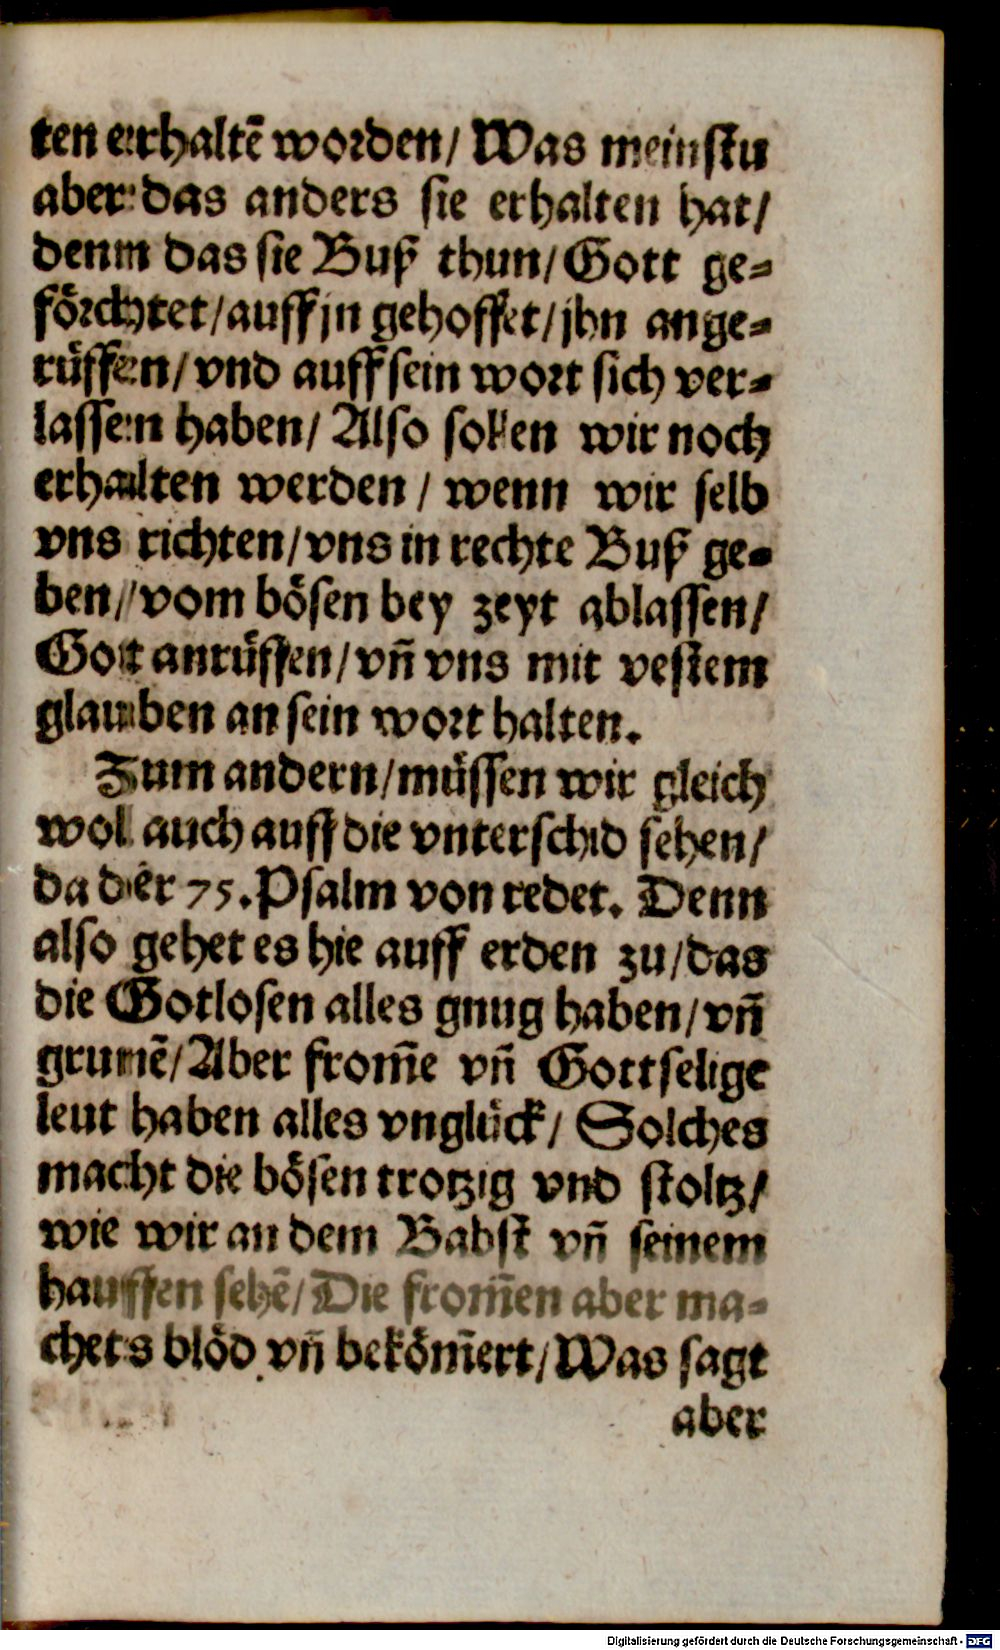 ten erhaltē worden/ Was meinstu
aber das anders sie erhalten hat/
denn das sie Buß thun/ Gott ge⸗
förchtet/ auff jn gehoffet/ jhn ange⸗
rüffen/ vnd auff sein wort sich ver⸗
lassen haben/ Also sollen wir noch
erhalten werden/ wenn wir selb
vns richten/ vns in rechte Buß ge⸗
ben/ vom bösen bey zeyt ablassen/
Gott anrüffen/ vn̄ vns mit vestem
glauben an sein wort halten.
Zum andern/ müssen wir gleich
wol auch auff die vnterschid sehen/
da der 75. Psalm von redet. Denn
also gehet es hie auff erden zu/ das
die Gotlosen alles gnug haben/ vn̄
grunē/ Aber from̄e vn̄ Gottselige
leut haben alles vnglück/ Solches
macht die bösen trotzig vnd stoltz/
wie wir an dem Babst vn̄ seinem
hauffen sehē/ Die from̄en aber ma⸗
chets blöd vn̄ beköm̄ert/ Was sagt
aber
Digitalisierung gefördert durch die Deutsche Forschungsgemeinschaft - DFG